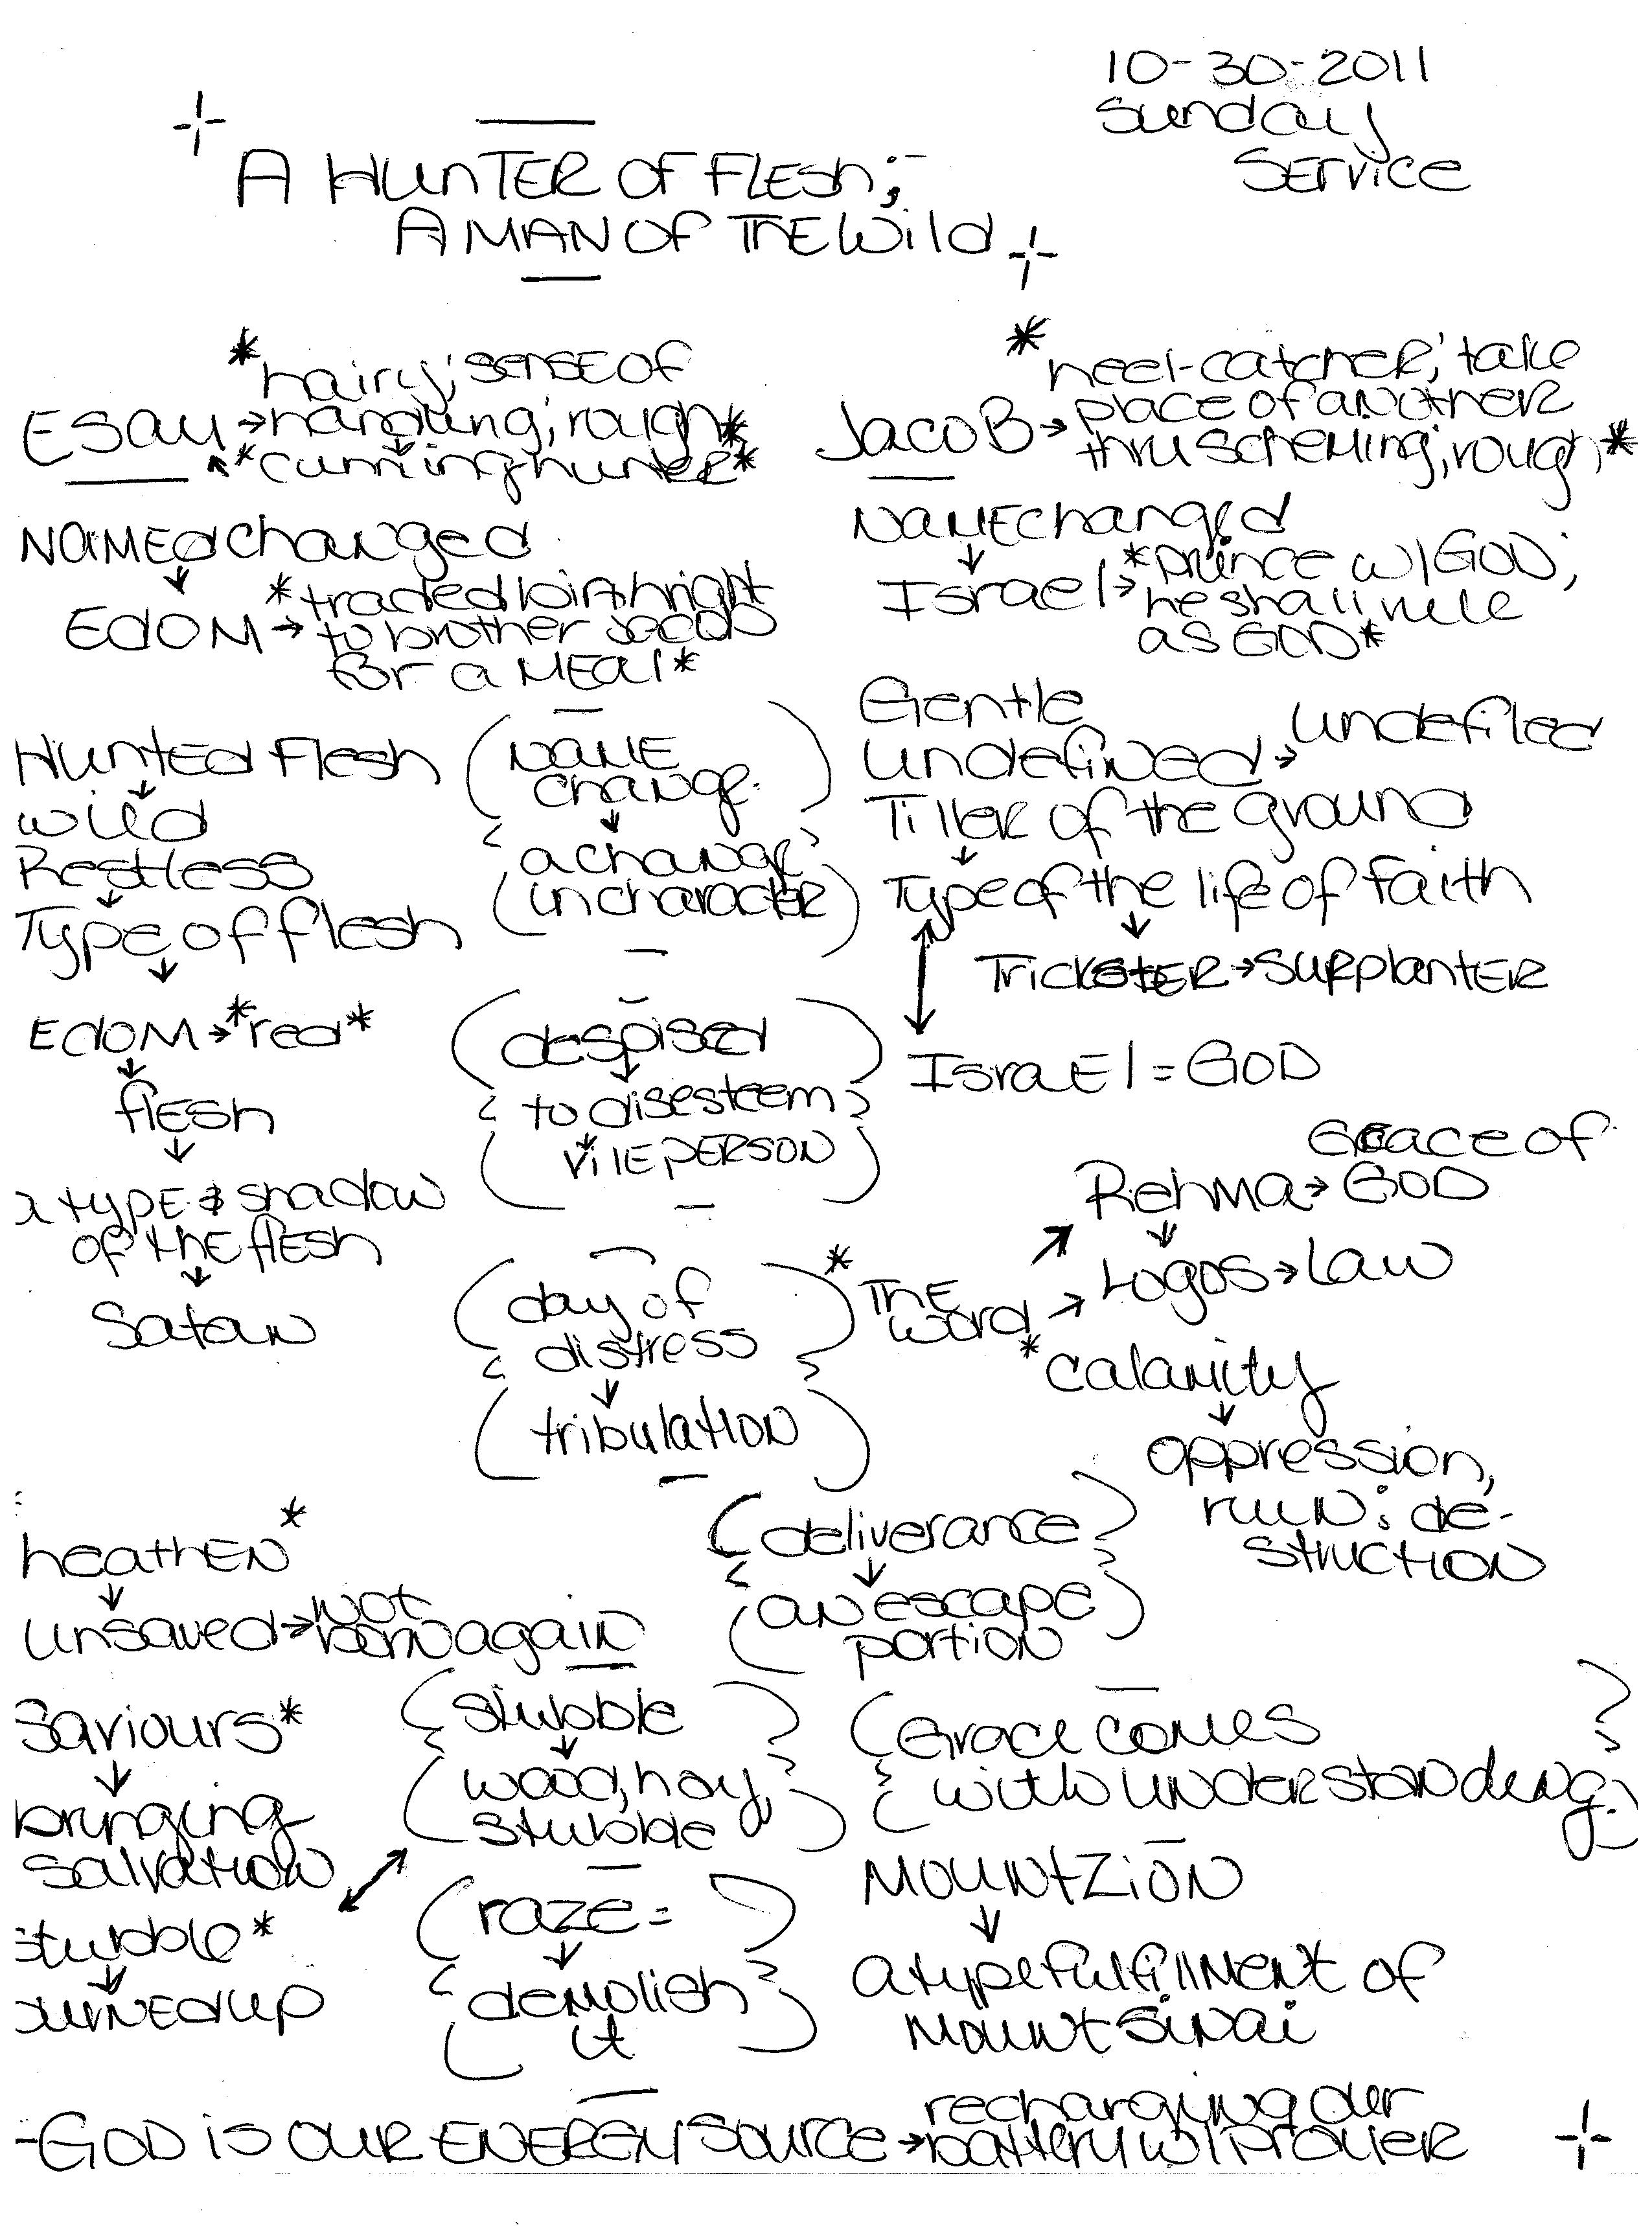 10-30-2011
Sunday
Service
A HUNTER OF FLESH;
A MAN OF THE Wild
*hairy; sense of
ESAU → handling; rough*
*cunning hunter*
NAMEd changed
↓
EdOM → *traded birthright
to brother Jacob
for a MEAl*
Hunted Flesh
↓
wild
Restless
↓
Type of flesh
↓
EdOM → *red*
↓
flesh
↓
a type & shadow
of the flesh
↓
Satan
(NAME
change
↓
a change
in character)
(despised
↓
to disesteem
↓
vile PERSON)
(day of
distress
↓
tribulation)
*heel-catcher; take
JacoB → place of another
thru scheming; rough*
NAME changed
↓
Israel → *prince w/ GOD;
he shall rule
as GOD*
Gentle
undefined → undefiled
Tiller of the ground
↓
Type of the life of Faith
↓
TrickstER → SupplantER
IsraEl = GOD
* The
word
→ Rehma → Grace of
GOD
↓
→ Logos → Law
*calamity
↓
oppression,
ruin; de-
struction
heathen*
↓
unsaved → not
born again
(deliverance
↓
an escape
portion)
Saviours*
↓
bringing
salvation
stubble*
↓
(stubble
↓
wood, hay,
stubble)
(raze =
↓
demolish
it)
(Grace comes
with understanding.)
Mount Zion
↓
a type fulfillment of
Mount Sinai
-GOD is OUR ENERGY Source → recharging our
battery w/ prayer